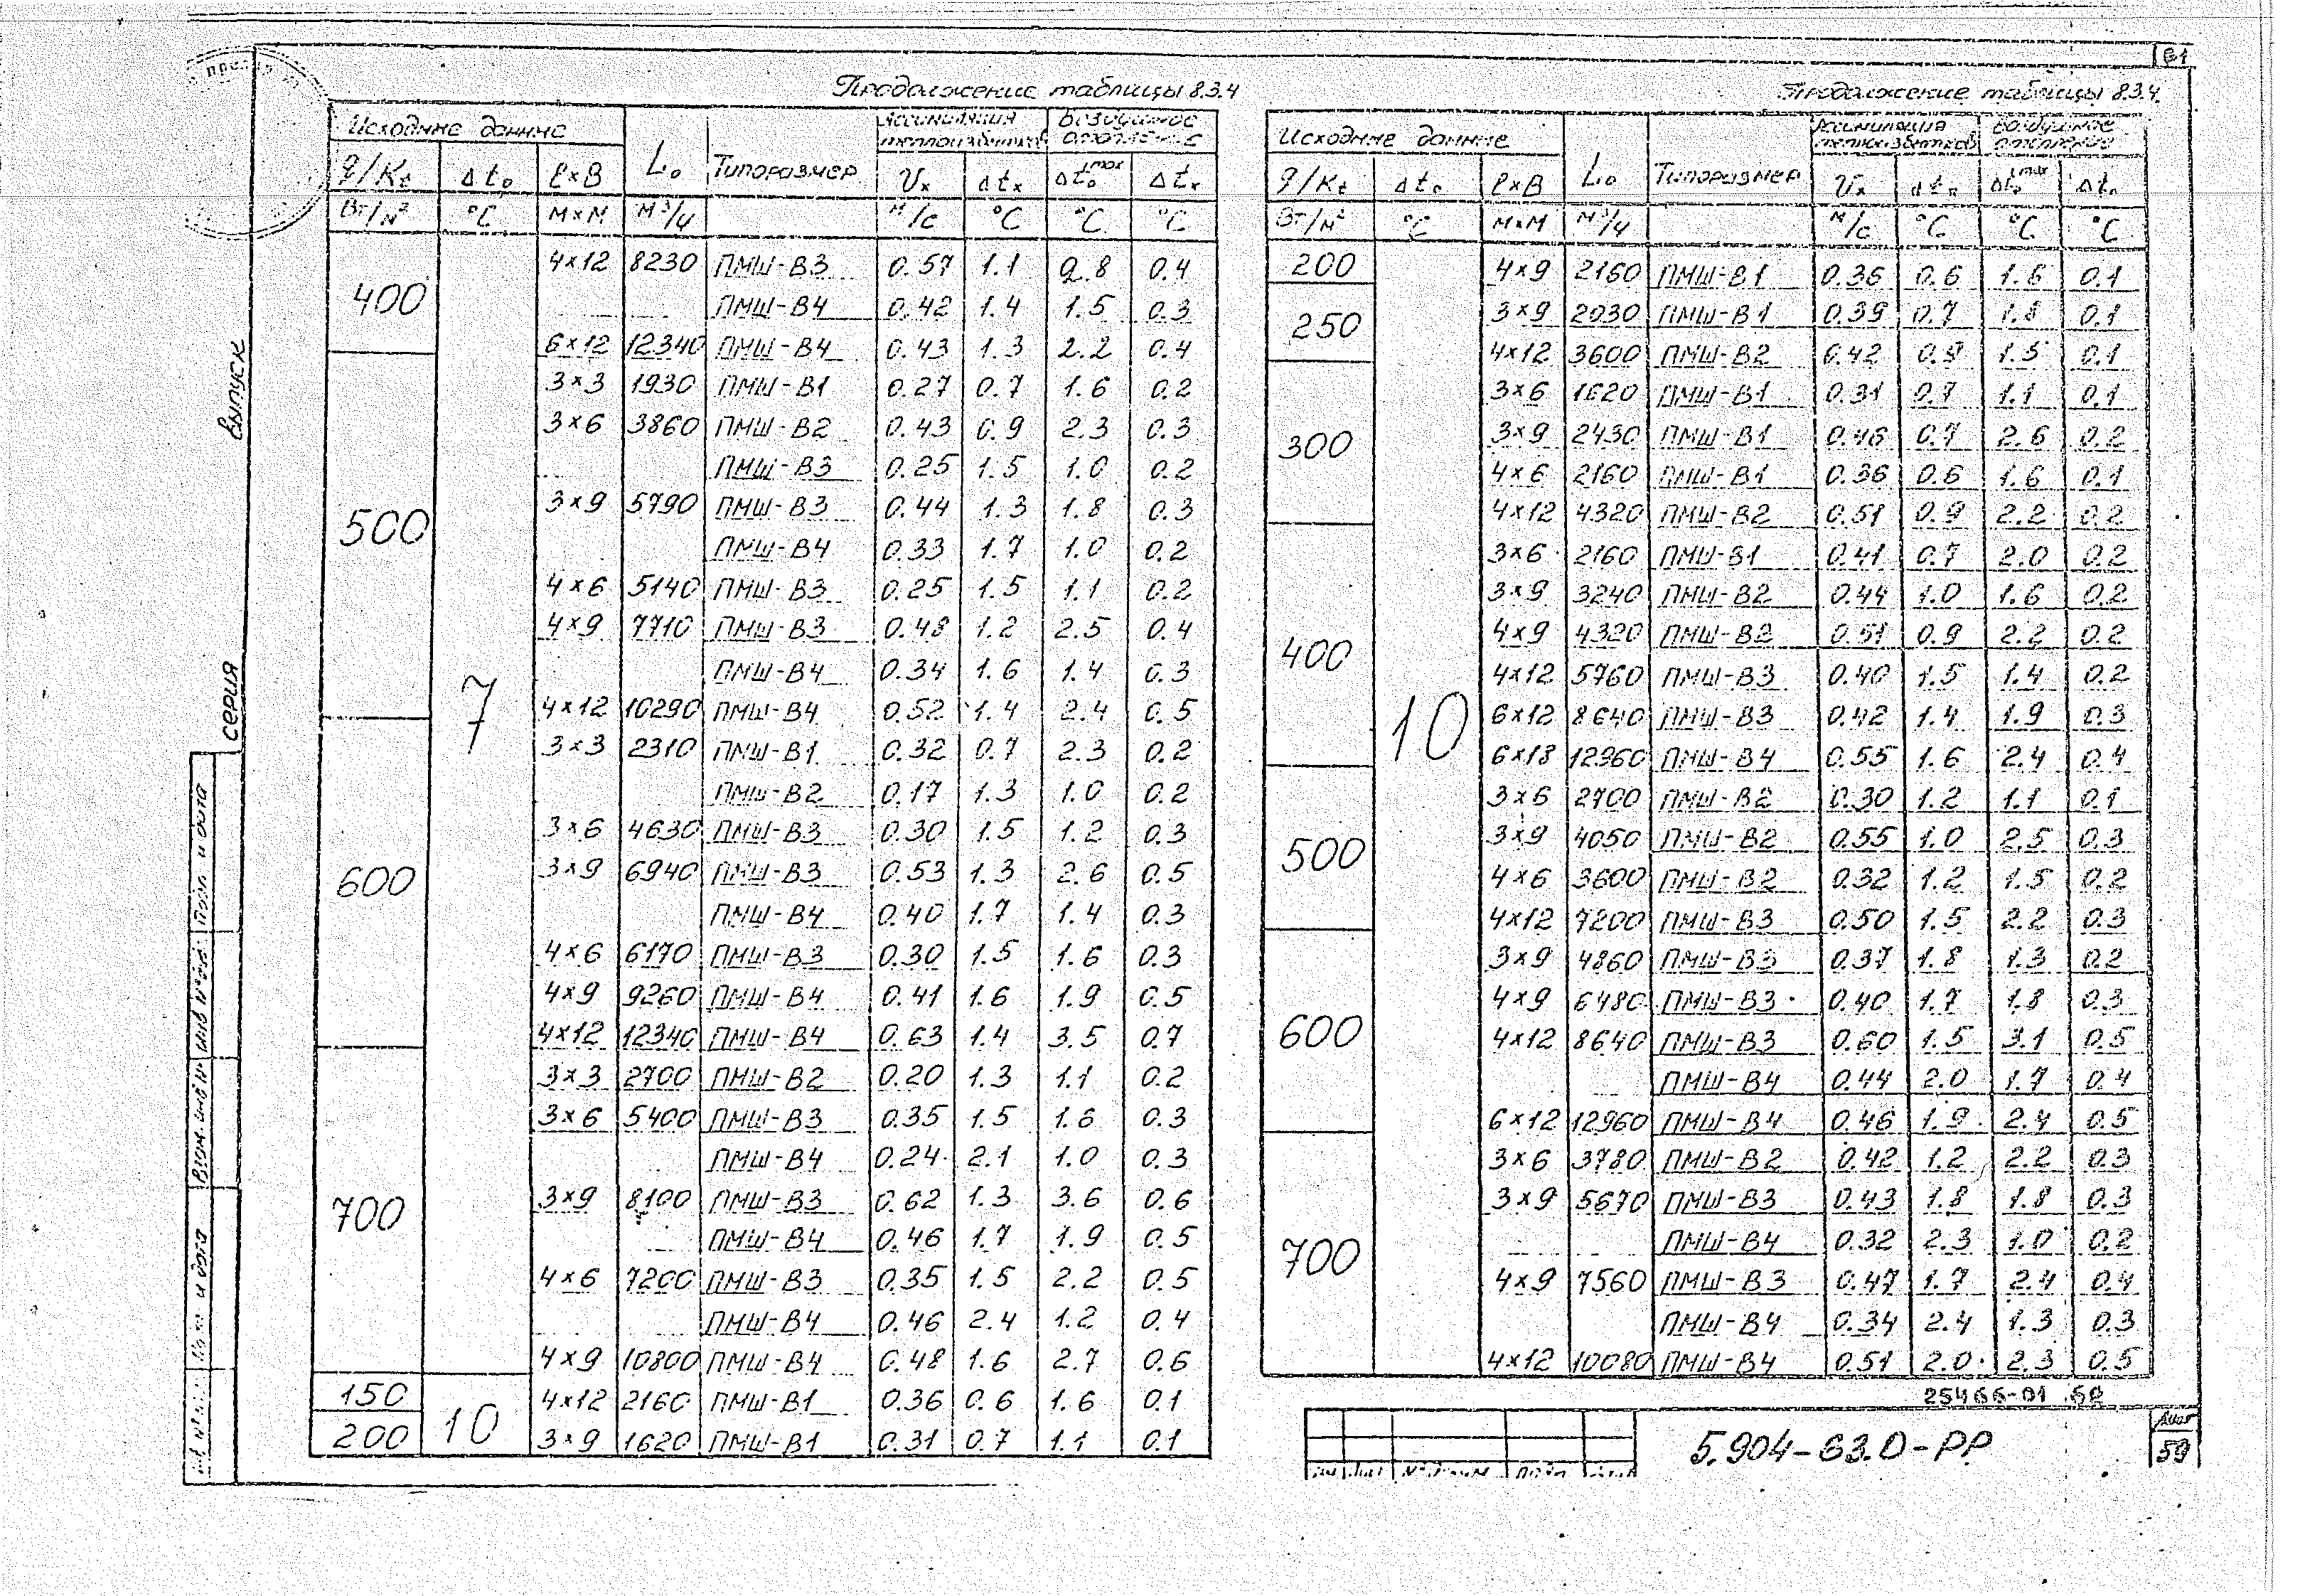 61
Продолжение таблицы 8.3.4
Исходные данные L₀ Типоразмер Ассимиляция теплоизбытков Воздушное отопление
q/Kt Δt₀ ℓ×B Vx Δtx Δt₀max Δtx
Вт/м² °C м×м м³/ч м/с °C °C °C
400 7 4×12 8230 ПМШ-В3 0.57 1.1 2.8 0.4
ПМШ-В4 0.42 1.4 1.5 0.3
6×12 12340 ПМШ-В4 0.43 1.3 2.2 0.4
500 3×3 1930 ПМШ-В1 0.27 0.7 1.6 0.2
3×6 3860 ПМШ-В2 0.43 0.9 2.3 0.3
ПМШ-В3 0.25 1.5 1.0 0.2
3×9 5790 ПМШ-В3 0.44 1.3 1.8 0.3
ПМШ-В4 0.33 1.7 1.0 0.2
4×6 5140 ПМШ-В3 0.25 1.5 1.1 0.2
4×9 7710 ПМШ-В3 0.48 1.2 2.5 0.4
ПМШ-В4 0.34 1.6 1.4 0.3
4×12 10290 ПМШ-В4 0.52 1.4 2.4 0.5
600 3×3 2310 ПМШ-В1 0.32 0.7 2.3 0.2
ПМШ-В2 0.17 1.3 1.0 0.2
3×6 4630 ПМШ-В3 0.30 1.5 1.2 0.3
3×9 6940 ПМШ-В3 0.53 1.3 2.6 0.5
ПМШ-В4 0.40 1.7 1.4 0.3
4×6 6170 ПМШ-В3 0.30 1.5 1.6 0.3
4×9 9260 ПМШ-В4 0.41 1.6 1.9 0.5
4×12 12340 ПМШ-В4 0.63 1.4 3.5 0.7
700 3×3 2700 ПМШ-В2 0.20 1.3 1.1 0.2
3×6 5400 ПМШ-В3 0.35 1.5 1.6 0.3
ПМШ-В4 0.24 2.1 1.0 0.3
3×9 8100 ПМШ-В3 0.62 1.3 3.6 0.6
ПМШ-В4 0.46 1.7 1.9 0.5
4×6 7200 ПМШ-В3 0.35 1.5 2.2 0.5
ПМШ-В4 0.46 2.4 1.2 0.4
4×9 10800 ПМШ-В4 0.48 1.6 2.7 0.6
150 10 4×12 2160 ПМШ-В1 0.36 0.6 1.6 0.1
200 3×9 1620 ПМШ-В1 0.31 0.7 1.1 0.1
Продолжение таблицы 8.3.4
Исходные данные L₀ Типоразмер Ассимиляция теплоизбытков Воздушное отопление
q/Kt Δt₀ ℓ×B Vx Δtx Δt₀max Δt₀
Вт/м² °C м×м м³/ч м/с °C °C °C
200 10 4×9 2160 ПМШ-В1 0.36 0.6 1.6 0.1
250 3×9 2030 ПМШ-В1 0.39 0.7 1.8 0.1
4×12 3600 ПМШ-В2 0.42 0.9 1.5 0.1
300 3×6 1620 ПМШ-В1 0.31 0.7 1.1 0.1
3×9 2430 ПМШ-В1 0.46 0.7 2.6 0.2
4×6 2160 ПМШ-В1 0.36 0.6 1.6 0.1
4×12 4320 ПМШ-В2 0.51 0.9 2.2 0.2
400 3×6 2160 ПМШ-В1 0.41 0.7 2.0 0.2
3×9 3240 ПМШ-В2 0.44 1.0 1.6 0.2
4×9 4320 ПМШ-В2 0.51 0.9 2.2 0.2
4×12 5760 ПМШ-В3 0.40 1.5 1.4 0.2
6×12 8640 ПМШ-В3 0.42 1.4 1.9 0.3
6×18 12960 ПМШ-В4 0.55 1.6 2.4 0.4
500 3×6 2700 ПМШ-В2 0.30 1.2 1.1 0.1
3×9 4050 ПМШ-В2 0.55 1.0 2.5 0.3
4×6 3600 ПМШ-В2 0.32 1.2 1.5 0.2
4×12 7200 ПМШ-В3 0.50 1.5 2.2 0.3
600 3×9 4860 ПМШ-В3 0.37 1.8 1.3 0.2
4×9 6480 ПМШ-В3 0.40 1.7 1.8 0.3
4×12 8640 ПМШ-В3 0.60 1.5 3.1 0.5
ПМШ-В4 0.44 2.0 1.7 0.4
6×12 12960 ПМШ-В4 0.46 1.9 2.4 0.5
700 3×6 3780 ПМШ-В2 0.42 1.2 2.2 0.3
3×9 5670 ПМШ-В3 0.43 1.8 1.8 0.3
ПМШ-В4 0.32 2.3 1.0 0.2
4×9 7560 ПМШ-В3 0.47 1.7 2.4 0.4
ПМШ-В4 0.34 2.4 1.3 0.3
4×12 10080 ПМШ-В4 0.51 2.0 2.3 0.5
25466-01
5.904-63.0-РР
Лист
59
выпуск
серия
Подп и дата
Взам. инв №